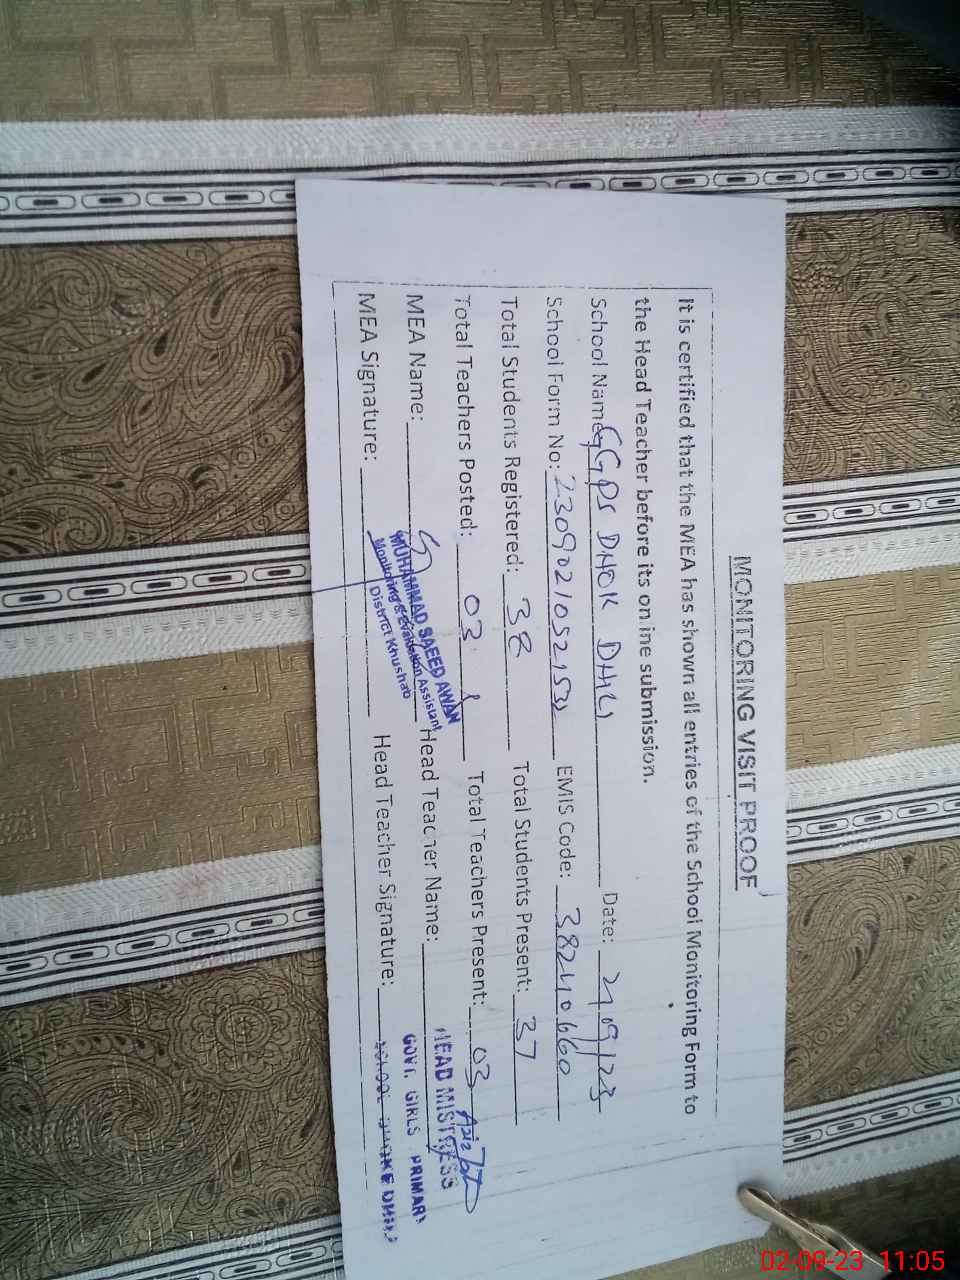 MONITORING VISIT PROOF
It is certified that the MEA has shown all entries of the School Monitoring Form to
the Head Teacher before its on ine submission.
School Name GGPS DHOK DHLI Date: 2/09/23
School Form No: EMIS Code: 38240660
Total Students Registered: 38 Total Students Present: 37
Total Teachers Posted: 03 Total Teachers Present: 03
MEA Name: Head Teacher Name:
MEA Signature: Head Teacher Signature:
MUHAMMAD SAEED AWAN
Monitoring & Evaluation Assistant
District Khushab
HEAD MISTRESS
GOVT. GIRLS PRIMARY
SCHOOL DHOKE
02-09-23 11:05